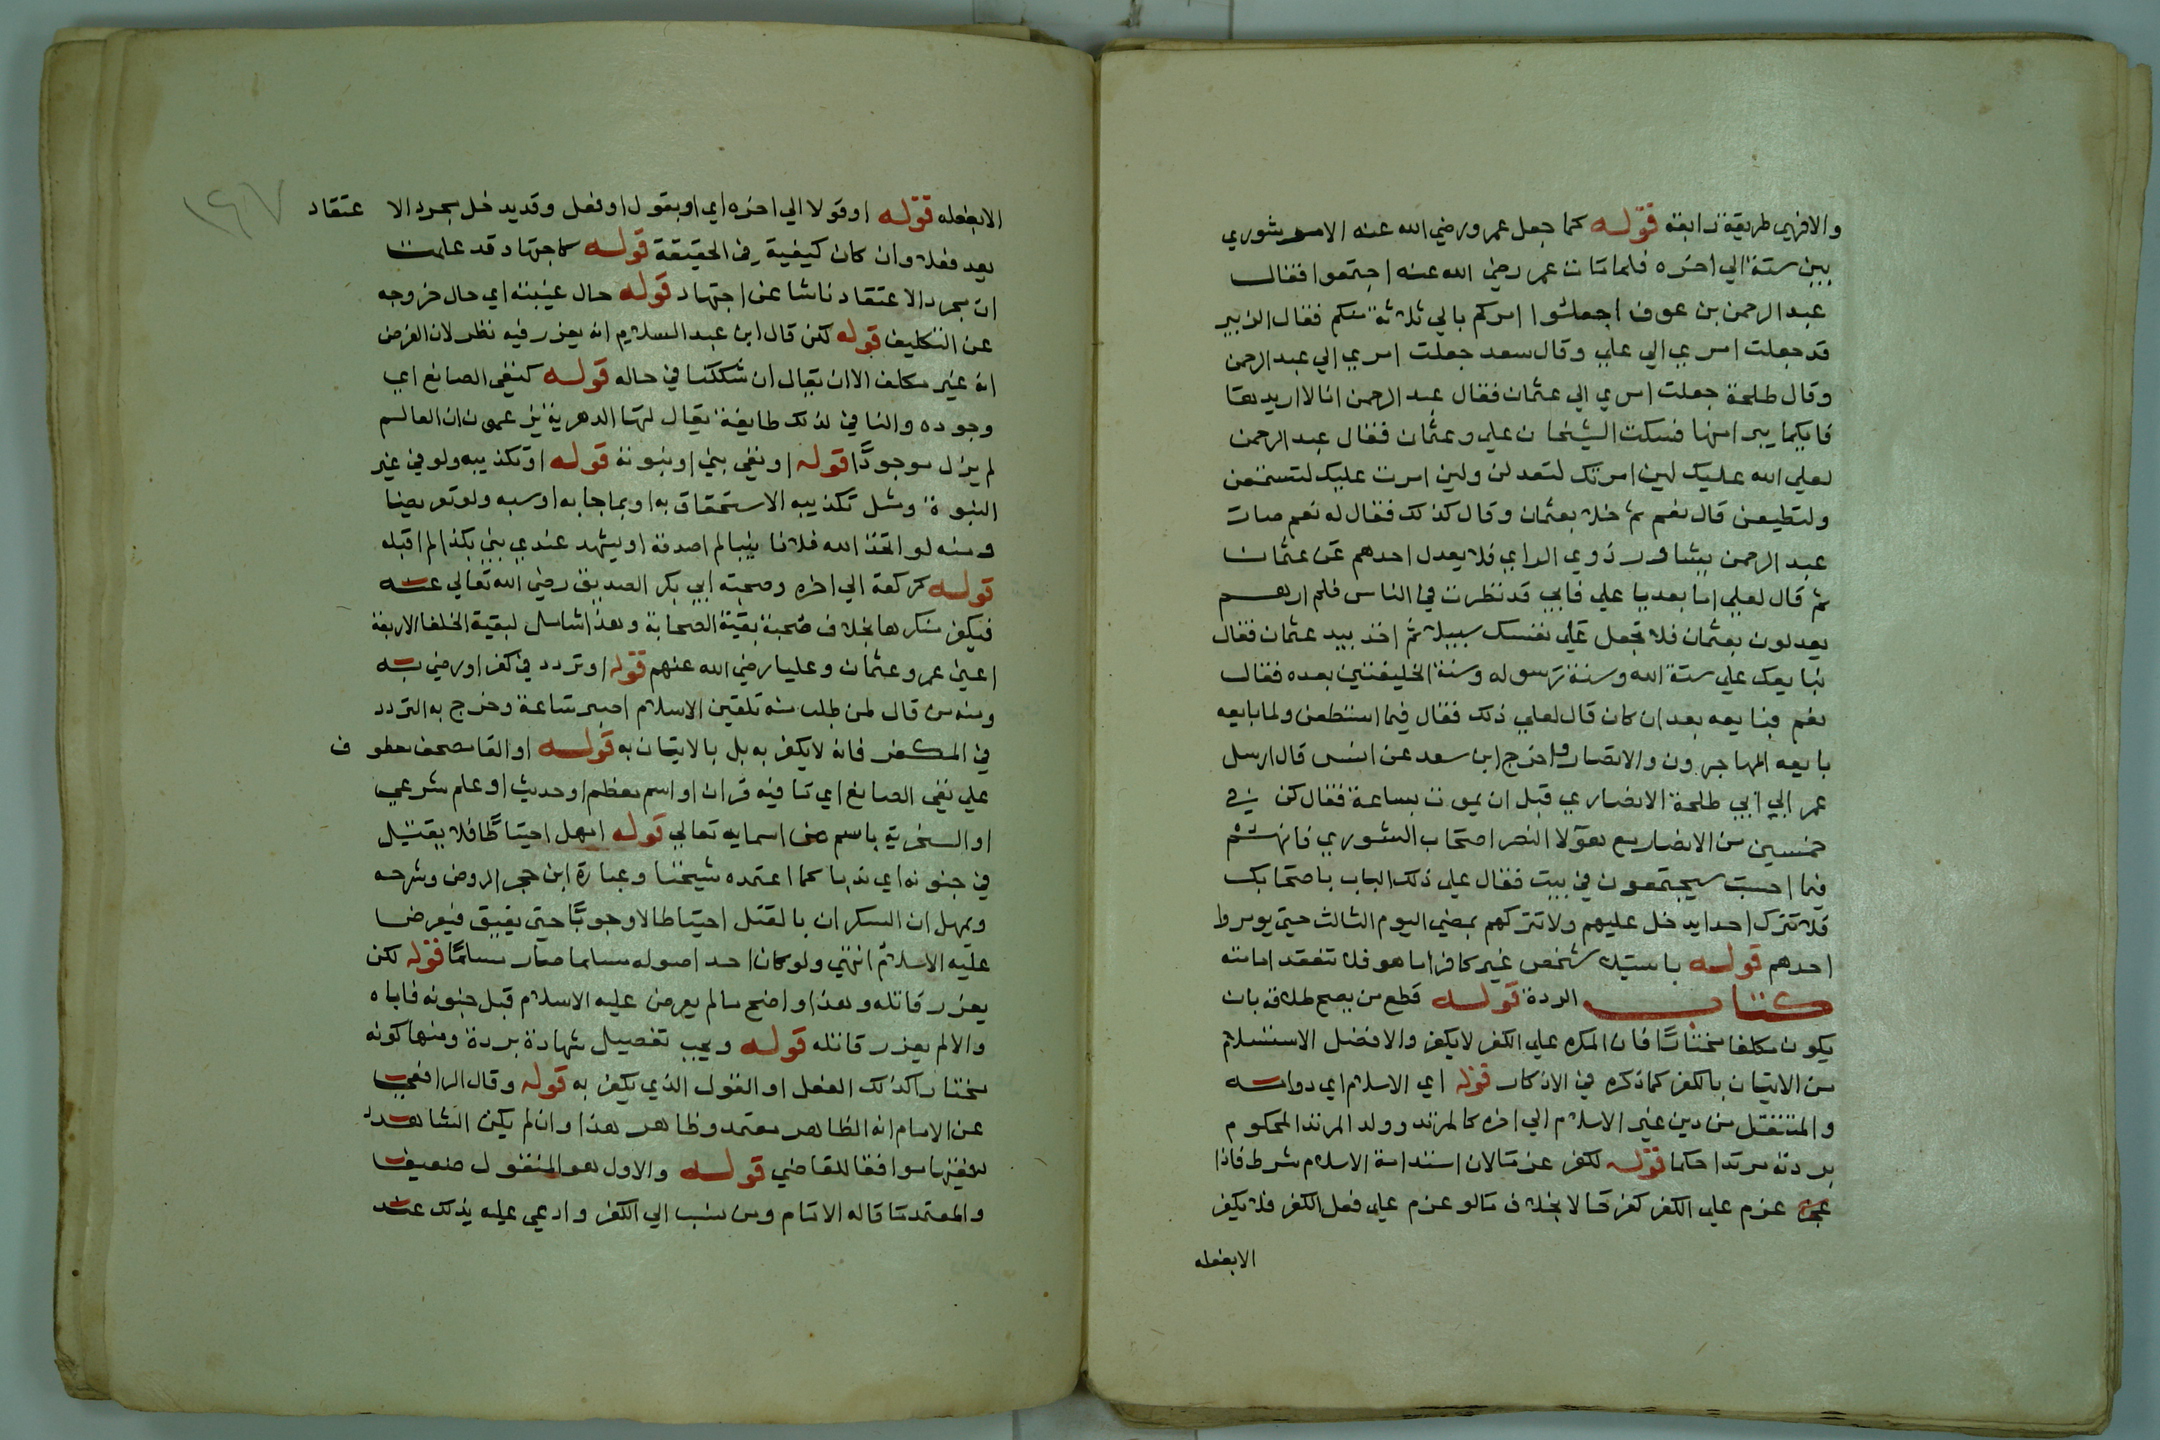 والا فهي طريقة رابعة قوله كما جعل عمر رضي الله عنه الامر شوري
بين ستة الي اخره فلما مات عمر رضي الله عنه اجتمعوا فقال
عبد الرحمن بن عوف اجعلوا امركم الي ثلاثة منكم فقال الزبير
قد جعلت امري الي علي وقال سعد جعلت امري الي عبد الرحمن
وقال طلحة جعلت امري الي عثمان فقال عبد الرحمن انا لا اريدها
فايكما يبرا منها فسكت الشيخان علي وعثمان فقال عبد الرحمن
لعلي الله عليك لين امرتك لتعدلن ولين امرت عليك لتسمعن
ولتطيعن قال نعم ثم خلا بعثمان وقال كذلك فقال له نعم
عبد الرحمن يشاور ذوي الراي فلا يعدل احدهم عن عثمان
ثم قال لعلي اما بعد يا علي فاني قد نظرت في الناس فلم ارهم
يعدلون بعثمان فلا تجعل علي نفسك سبيلا ثم اخذ بيد عثمان فقال
نبايعك علي سنة الله وسنة رسوله وسنة الخليفتين بعده فقال
نعم فبايعه بعد ان كان قال لعلي ذلك فقال فيما استطعن ولما بايعه
بايعه المهاجرون والانصار واخرج ابن سعد عن انس قال ارسل
عمر الي ابي طلحة الانصاري قبل ان يموت بساعة فقال كن في
خمسين من الانصار مع هولا النفر اصحاب الشوري فانهم
فيما احسب سيجتمعون في بيت فقال علي ذلك الباب باصحابك
فلا تترك احدا يدخل عليهم ولا تتركهم يمضي اليوم الثالث حتي يومروا
احدهم قوله باستيلا شخص غير كافر اما هو فلا تنعقد امامته
كتاب الردة قوله قطع من يصح طلاقه بان
يكون مكلفا مختارا فان المكره علي الكفر لا يكفر والافضل الاستسلام
من الاتيان بالكفر كما ذكره في الاذكار قوله اي الاسلام اي دوامه
والمنتقل من دين غير الاسلام الي اخره كالمرتد وولد المرتد المحكوم
بردته مرتدا حكما قوله لكفر عزما لان استدامة الاسلام شرط فاذا
عزم علي الكفر كفر حالا بخلاف ما لو عزم علي فعل الكفر فلا يكفر
الابفعله
١٩٧
الابفعله قوله او قولا الي اخره اي او بقول او فعل وقد يدخل بمجرد الاعتقاد
بعد فعلا وان كان كيفية في الحقيقة قوله كاجتهاد قد علمت
ان مجرد الاعتقاد ناشا عن اجتهاد قوله حال غيبته اي حال خروجه
عن التكليف قوله لكن قال ابن عبد السلام انه يعزر فيه نظر لان الفرض
انه غير مكلف الا ان يقال ان شككنا في حاله قوله كنفي الصانع اي
وجوده والنافي لذلك طايفة يقال لها الدهرية يزعمون ان العالم
لم يزل موجودًا قوله او نفي نبي او نبوته قوله او تكذيبه ولو في غير
النبوة ومثل تكذيبه الاستخفاف به او بما جا به او سبه ولو تعريضا
ومنه لو اتخذ الله فلانا نبيا لم اصدقه او يشهد عندي نبي بكذا لم اقبله
قوله كركعة الي اخره وصحبته ابي بكر الصديق رضي الله تعالي عنه
فيكفر منكرها بخلاف صحبة بقية الصحابة وهذا شامل لبقية الخلفا الاربعة
اعني عمر وعثمان وعليا رضي الله عنهم قوله او تردد في كفر او رضي به
ومنه من قال لمن طلب منه تلقين الاسلام اصبر ساعة وخرج به التردد
في المكفر فانه لا يكفر به بل بالاتيان به قوله او القا مصحف معطوف
علي نفي الصانع اي ما فيه قران او اسم معظم او حديث او علم شرعي
او السخرية باسم من اسمايه تعالي قوله امهل احتياطًا فلا يقتل
في جنونه اي ندبا كما اعتمده شيخنا وعبارة ابن حجر الروض وشرحه
ويمهل ان السكران بالقتل احتياطا لا وجوبًا حتي يفيق فيعرض
عليه الاسلام انتهي ولو كان احد اصوله مسلما صار مسلمًا قوله لكن
يعزر قاتله وهذا واضح ما لم يعرض عليه الاسلام قبل جنونه فاباه
والا لم يعزر قاتله قوله ويجب تفصيل شهادة بردة ومنها كونه
مختارا كذلك الفعل او القول الذي يكفر به قوله وقال الرافعي
عن الامام انه الظاهر معتمد وظاهر هذا وان لم يكن الشاهد
موافقا للقاضي قوله والاول هو المنقول ضعيف
والمعتمد ما قاله الامام ومن نسب الي الكفر وادعي عليه بذلك عند